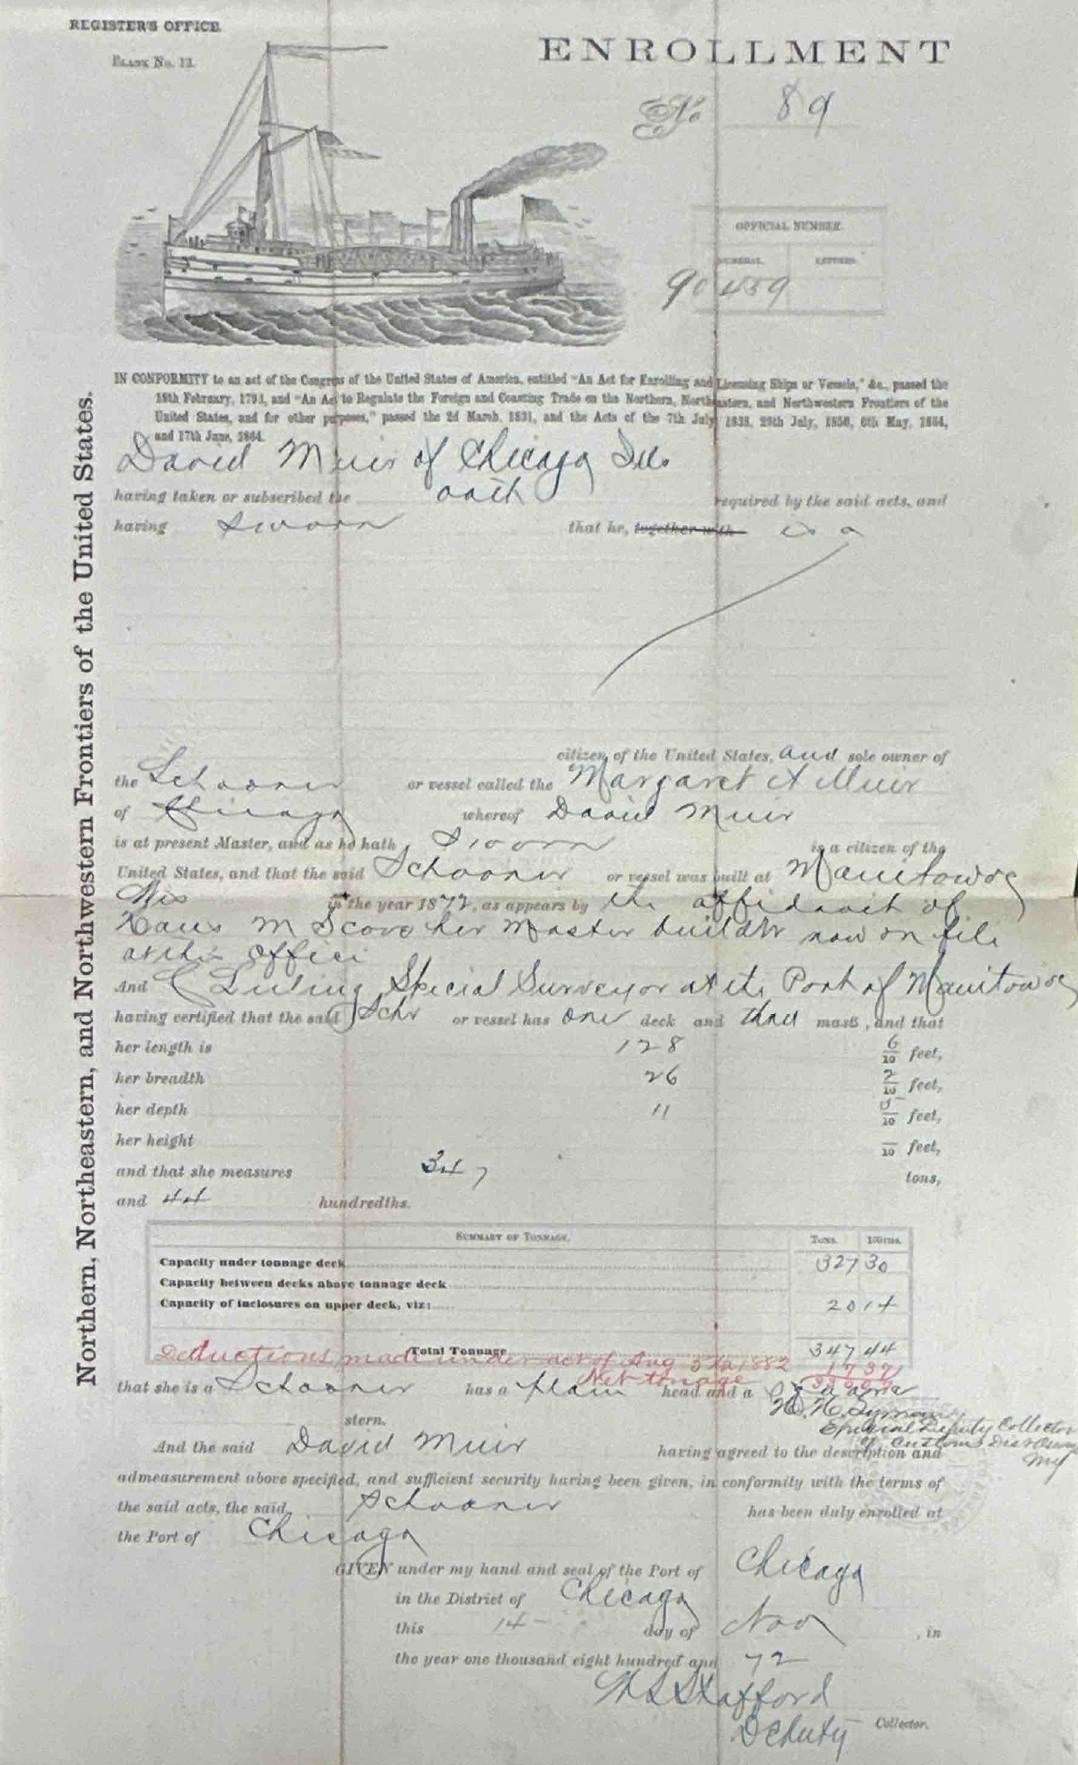 REGISTER'S OFFICE.
ENROLLMENT
BLANK No. 13.
No 89
OFFICIAL NUMBER.
NUMERAL. LETTERS.
90459
IN CONFORMITY to an act of the Congress of the United States of America, entitled "An Act for Enrolling and Licensing Ships or Vessels," &c., passed the
18th February, 1793, and "An Act to Regulate the Foreign and Coasting Trade on the Northern, Northeastern, and Northwestern Frontiers of the
United States, and for other purposes," passed the 2d March, 1831, and the Acts of the 7th July, 1838, 29th July, 1850, 6th May, 1864,
and 17th June, 1864.
David Muir of Chicago Ills
having taken or subscribed the oath required by the said acts, and
having sworn that he, together with is a
citizen of the United States, and sole owner of
the Schooner or vessel called the Margaret A Muir
of Chicago whereof David Muir
is at present Master, and as he hath Sworn is a citizen of the
United States, and that the said Schooner or vessel was built at Manitowoc
Wis in the year 1872, as appears by the affidavit of
Hans M Scove her Master builder now on file
at this Office
And C Luling Special Surveyor at the Port of Manitowoc
having certified that the said Schr or vessel has one deck and three masts, and that
her length is 128 6/10 feet,
her breadth 26 2/10 feet,
her depth 11 5/10 feet,
her height /10 feet,
and that she measures 347 tons,
and 44 hundredths.
SUMMARY OF TONNAGE. TONS. 100THS.
Capacity under tonnage deck 327 30
Capacity between decks above tonnage deck
Capacity of inclosures on upper deck, viz: 20 14
Total Tonnage 347 44
Deductions made under act of Aug 5th 1882 17 37
Net tonage
that she is a Schooner has a plain head and a
H. N. Symon
Special Deputy Collector
of Customs Dist
stern.
And the said David Muir having agreed to the description and
admeasurement above specified, and sufficient security having been given, in conformity with the terms of
the said acts, the said Schooner has been duly enrolled at
the Port of Chicago
GIVEN under my hand and seal of the Port of Chicago
in the District of Chicago
this 14 day of Nov , in
the year one thousand eight hundred and 72
Stafford
Deputy Collector.
Northern, Northeastern, and Northwestern Frontiers of the United States.